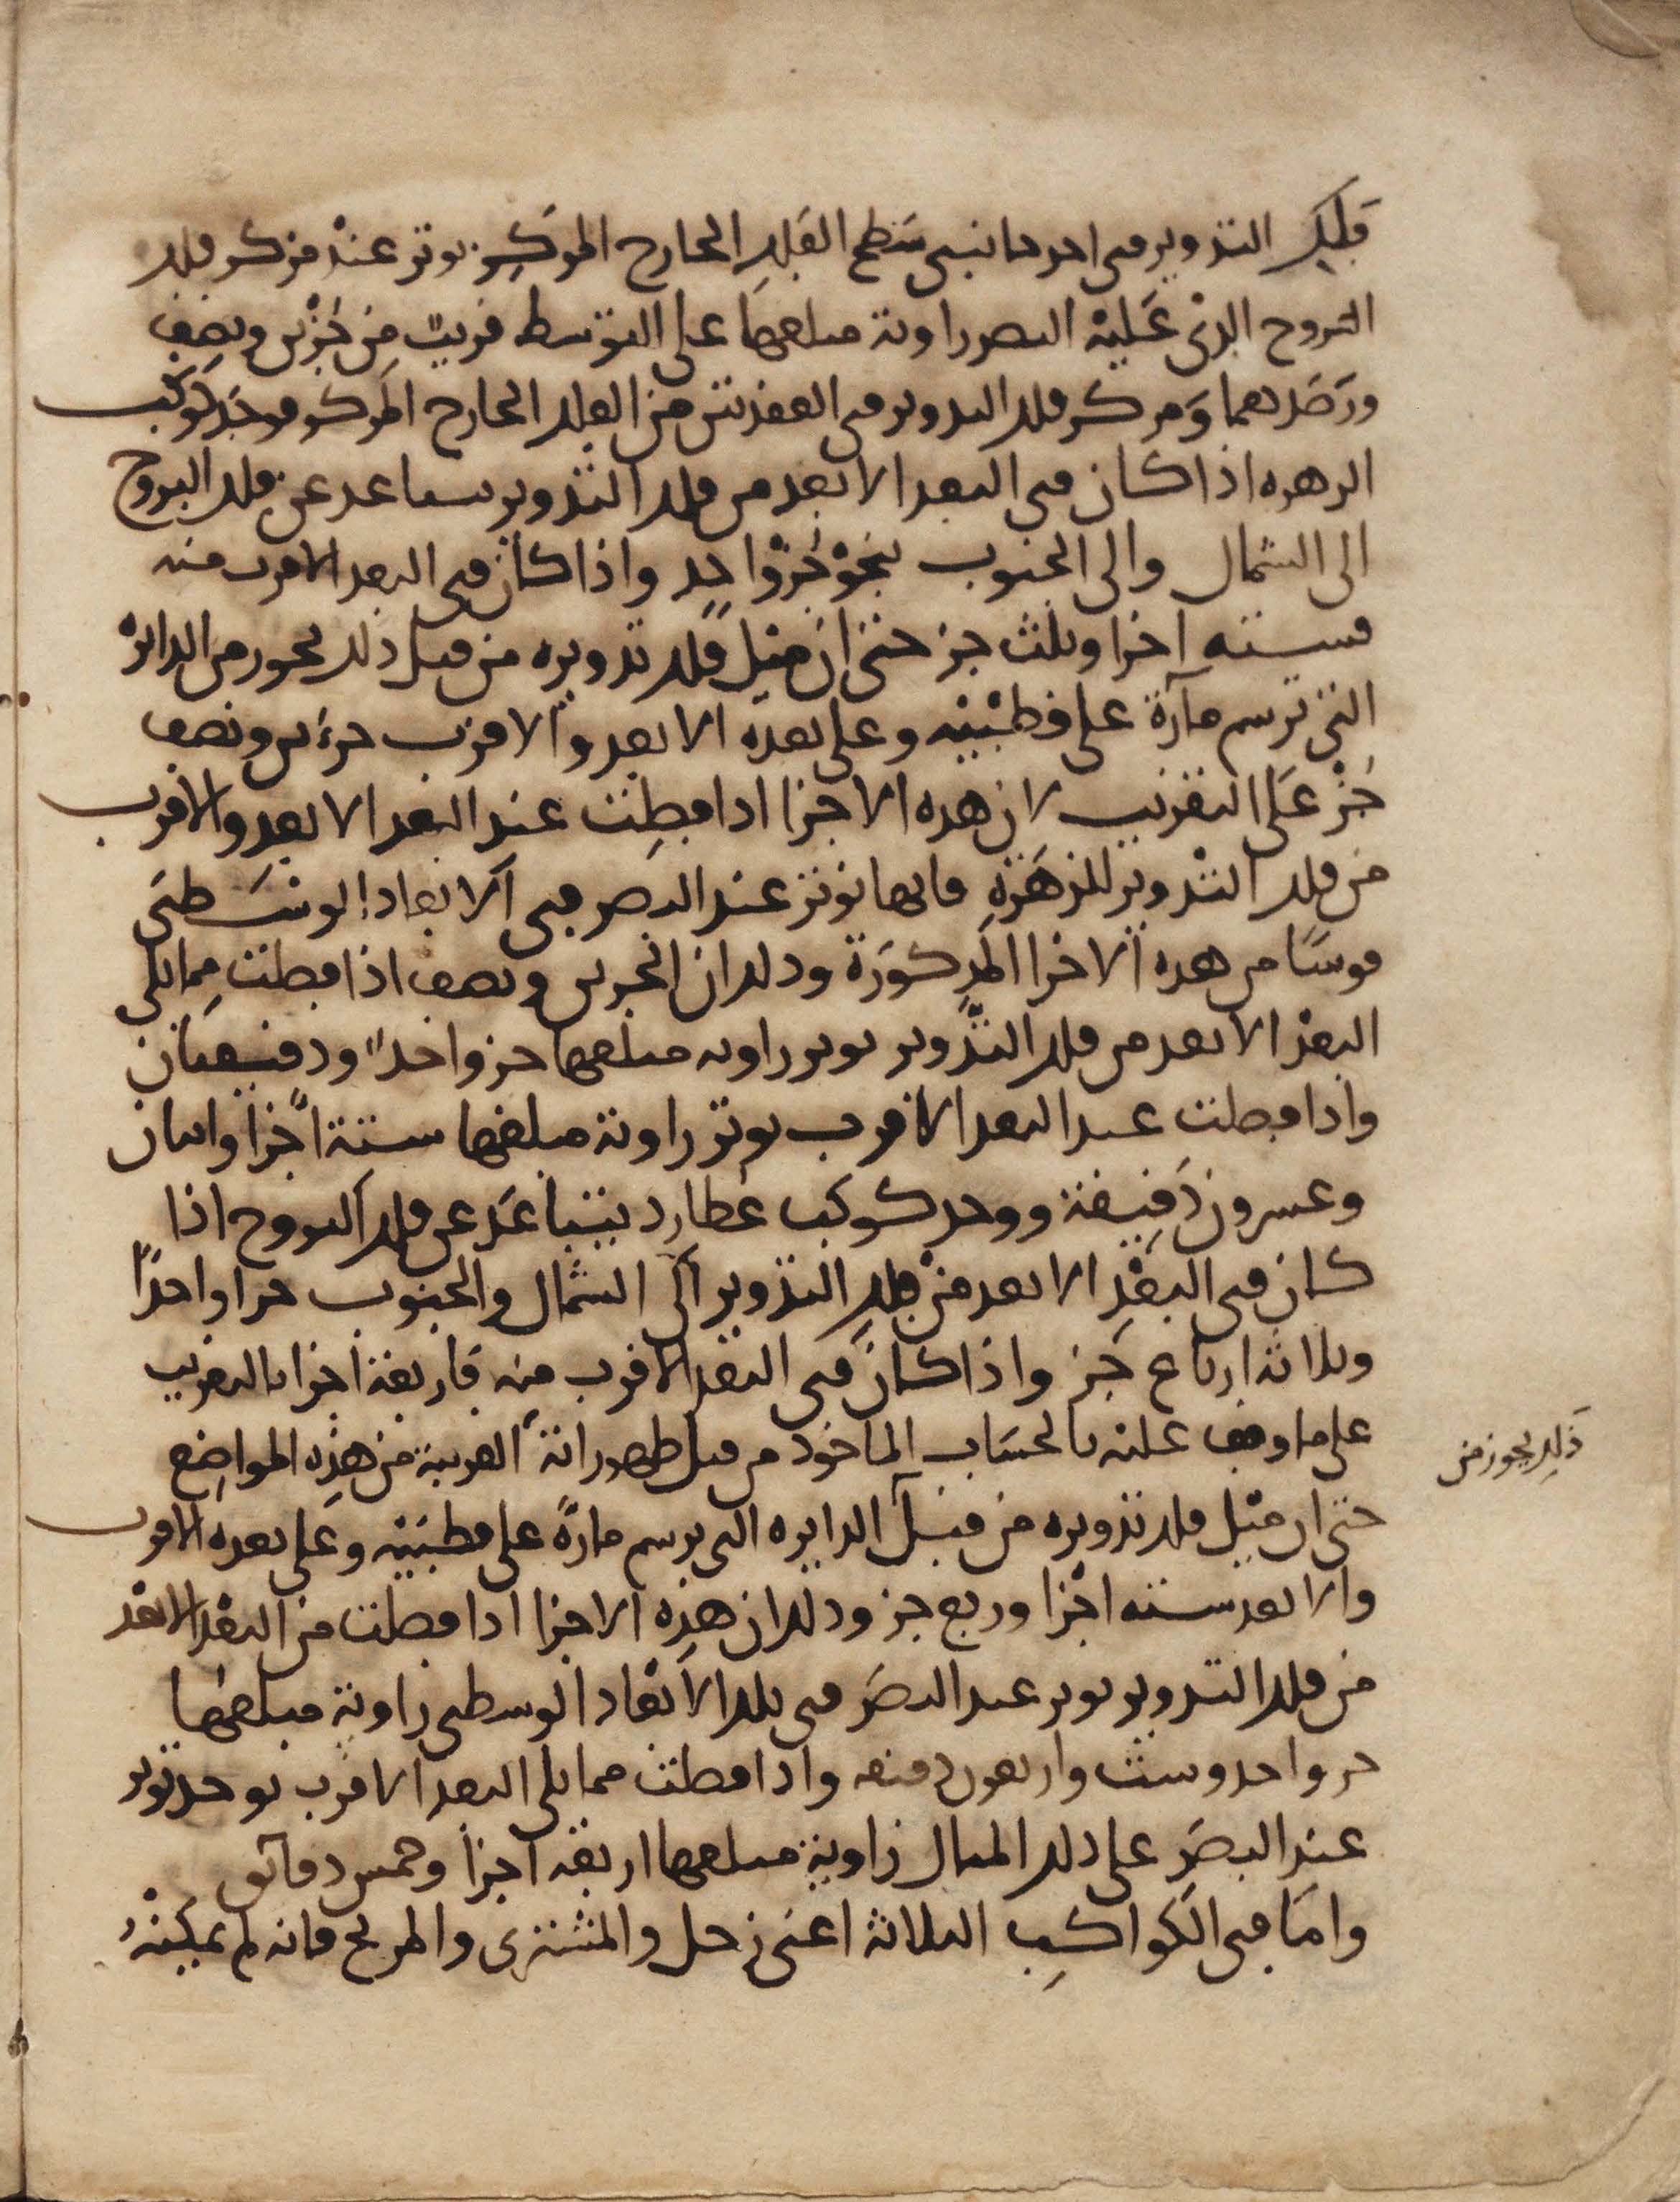 فلك التدوير فى احد جانبى سطح الفلك الخارج المركز يوتر عند مركز فلك
البروج الذى عليه البصر زاوية مبلغها على التوسط قريب من جزين ونصف
ورصدهما ومركز فلك التدوير فى العقدتين من الفلك الخارج المركز فوجد كوكب
الزهره اذا كان فى البعد الابعد من فلك التدوير يتباعد عن فلك البروج
الى الشمال والى الجنوب نحو جزواحد واذا كان فى البعد الاقرب منه
فسته اجزا وثلث جز حتى ان ميل فلك تدويره من قبل ذلك يحوز من الدائرة
التى ترسم مآرة على قطبيه وعلى بعده الابعد والاقرب جزءين ونصف
جز على التقريب لان هذه الاجزا اذا فصلت عند البعد الابعد والاقرب
من فلك التدوير للزهرة فانها توتر عند البصر فى الابعاد الوسطى
قوسا من هذه الاجزا المذكورة وذلك ان الجزين ونصف اذا فصلت مما يلى
البعد الابعد من فلك التدوير يوتر زاويه مبلغها جز واحدا ودقيقتان
واذا فصلت عند البعد الاقرب يوتر زاوية مبلغها ستة اجزا واثنان
وعشرون دقيقة ووجد كوكب عطارد يتباعد عن فلك البروج اذا
كان فى البعد الابعد من فلك التدوير الى الشمال والجنوب جزا واحدا
وثلاثة ارباع جز واذا كان فى البعد الاقرب منه فاربعة اجزا بالتقريب
على ما وقف عليه بالحساب الماخوذ من قبل ظهوراته القريبة من هذه المواضع
ذلك يحوز من
حتى ان ميل فلك تدويره من قبل الدايره التى يرسم مارة على قطبيه وعلى بعده الاقرب
والابعد سته اجزا وربع جز وذلك ان هذه الاجزا اذا فصلت من البعد الابعد
من فلك التدوير يوتر عند البصر فى تلك الابعاد الوسطى زاوية مبلغها
جز واحد وست واربعون دقيقه واذا فصلت مما يلى البعد الاقرب يوجد توتر
عند البصر على ذلك المثال زاوية مبلغها اربعة اجزا وخمس دقائق
واما فى الكواكب الثلاثة اعنى زحل والمشترى والمريخ فانه لم يمكنه